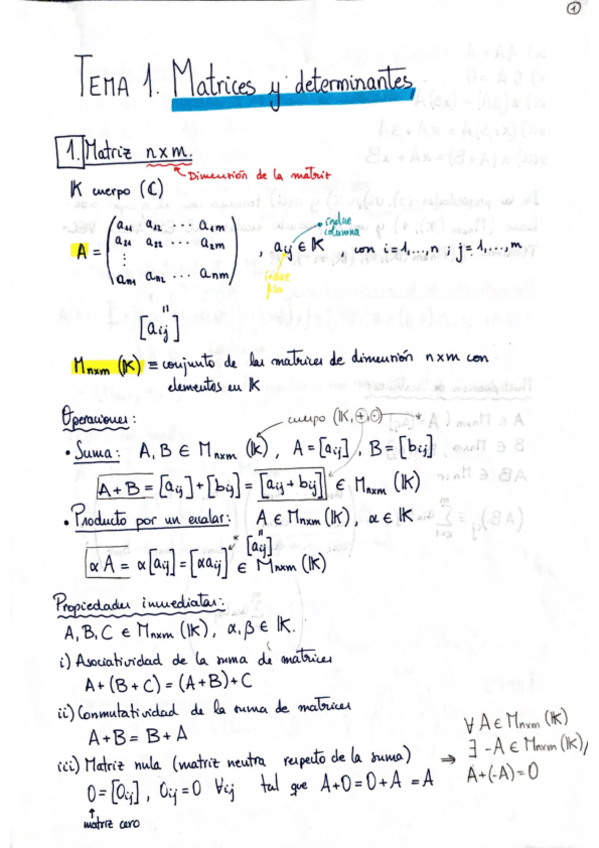 1
TEMA 1. Matrices y determinantes
1. Matriz n x m.
Dimensión de la matriz
K cuerpo (C)
A = (a11 a12 ... a1m
a21 a22 ... a2m
⋮
an1 an2 ... anm) , aij ∈ K , con i=1,...,n ; j=1,...,m
índice columna
índice fila
"
[aij]
Mnxm (K) ≡ conjunto de las matrices de dimensión n x m con
elementos en K
Operaciones:
cuerpo (K,+,·)
• Suma: A, B ∈ Mnxm (K), A = [aij], B = [bij]
A + B = [aij] + [bij] = [aij + bij] ∈ Mnxm (K)
• Producto por un escalar: A ∈ Mnxm (K), α ∈ K
"
[aij]
α A = α [aij] = [αaij] ∈ Mnxm (K)
Propiedades inmediatas:
A, B, C ∈ Mnxm (K), α, β ∈ K.
i) Asociatividad de la suma de matrices
A + (B + C) = (A + B) + C
ii) Conmutatividad de la suma de matrices
A + B = B + A
iii) Matriz nula (matriz neutra respecto de la suma) ⇒
0 = [0ij], 0ij = 0 ∀ij tal que A+0 = 0+A = A
matriz cero
∀ A ∈ Mnxm (K)
∃ -A ∈ Mnxm (K)/
A+(-A) = 0